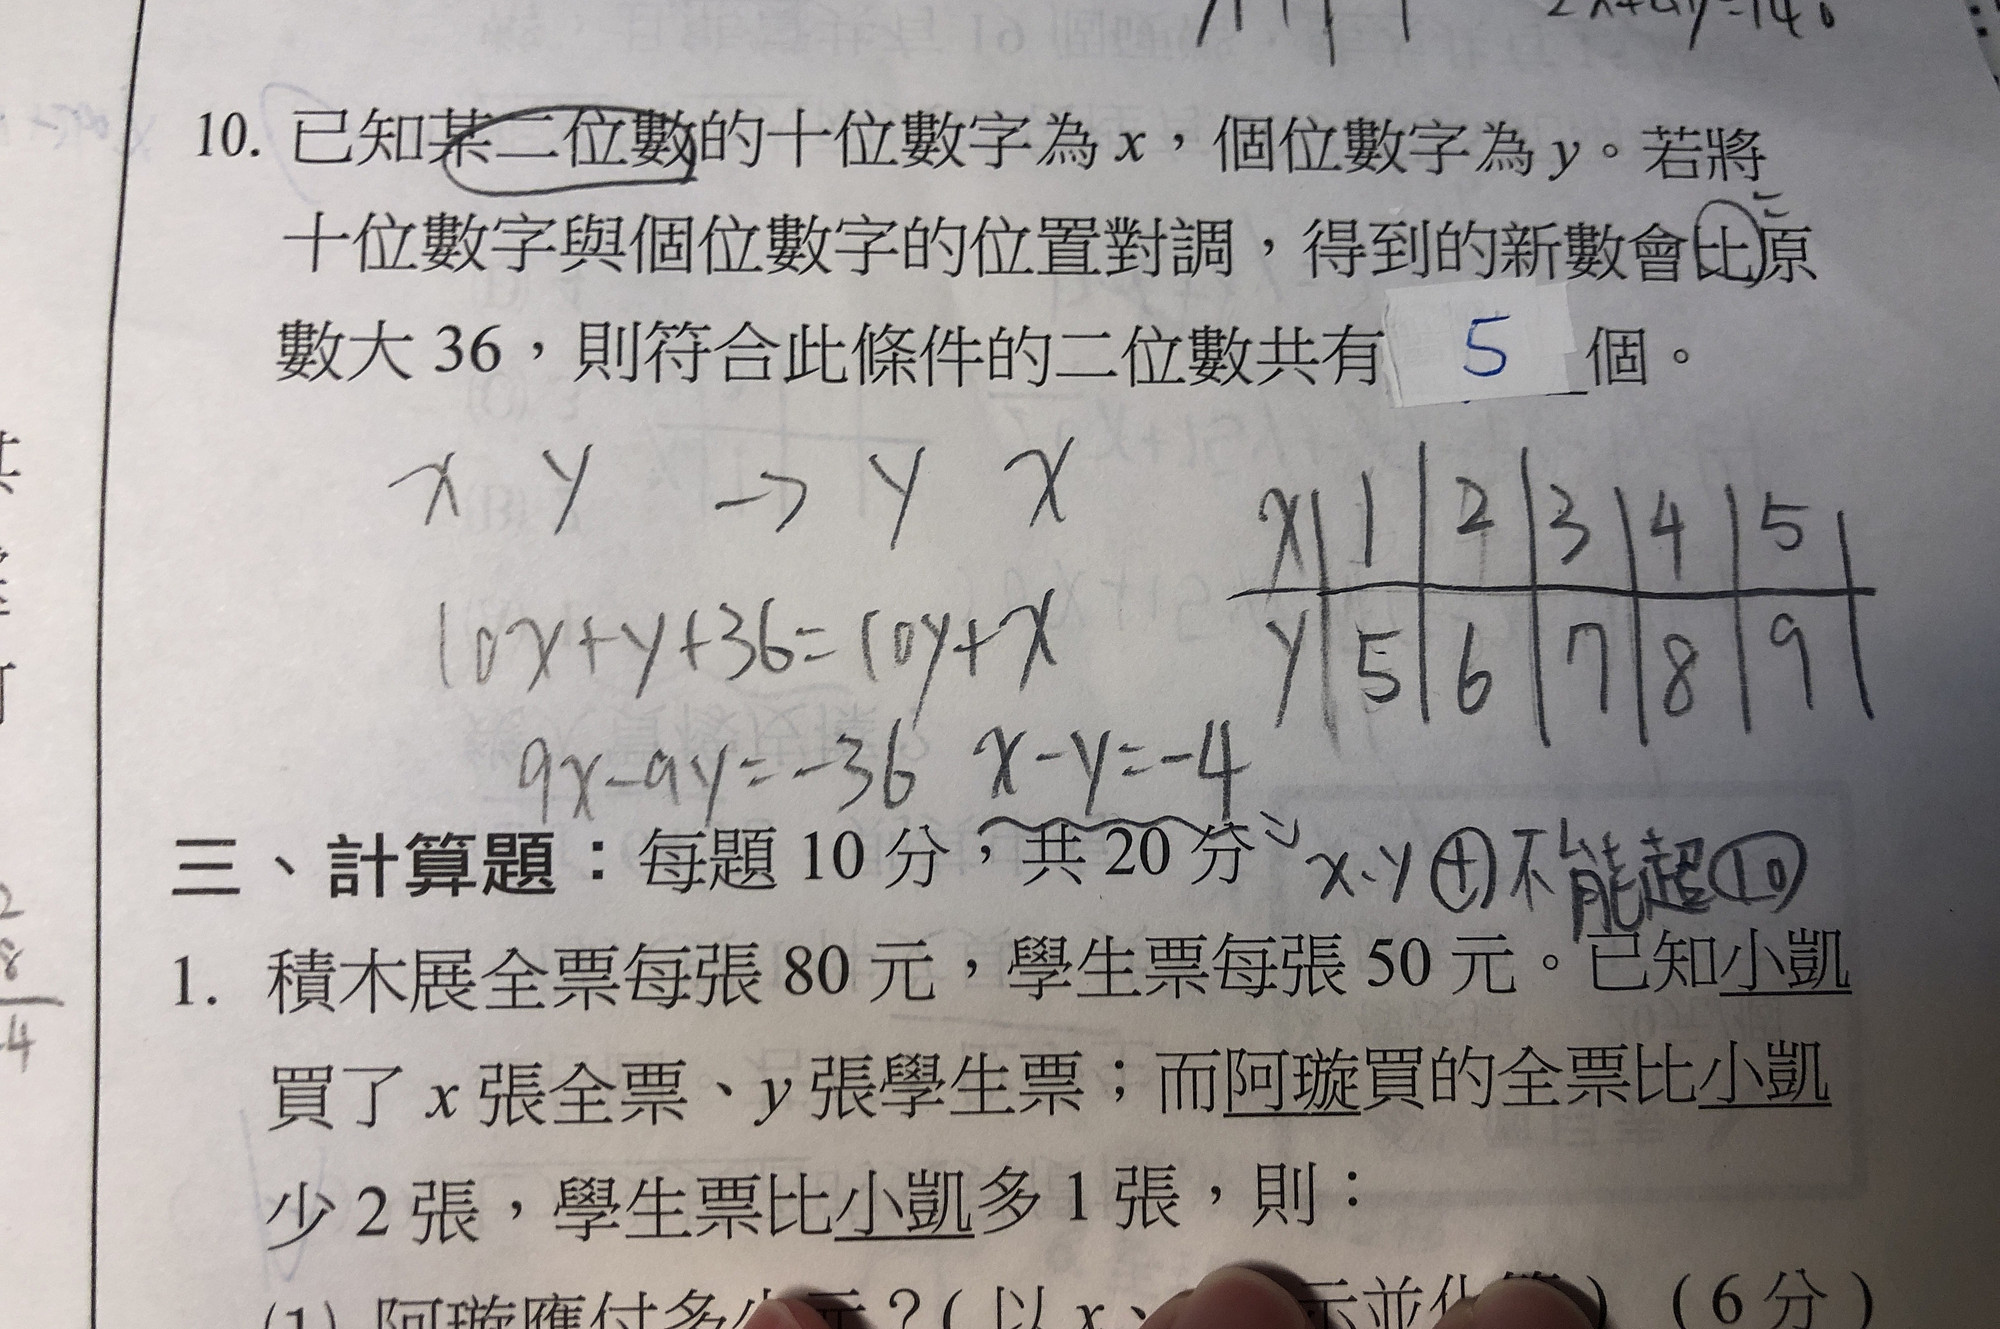 2x+4y=140
10. 已知某二位數的十位數字為 x，個位數字為 y。若將
十位數字與個位數字的位置對調，得到的新數會比原
數大 36，則符合此條件的二位數共有 5 個。
x y → y x
x 1 2 3 4 5
y 5 6 7 8 9
10x+y+36=10y+x
9x-9y=-36 x-y=-4
三、計算題：每題 10 分，共 20 分
x、y ⊕不能超⑩
1. 積木展全票每張 80 元，學生票每張 50 元。已知小凱
買了 x 張全票、y 張學生票；而阿璇買的全票比小凱
少 2 張，學生票比小凱多 1 張，則：
(1) 阿璇應付多少元？( 以 x、 示並化簡 ) ( 6 分 )
2
8
-4